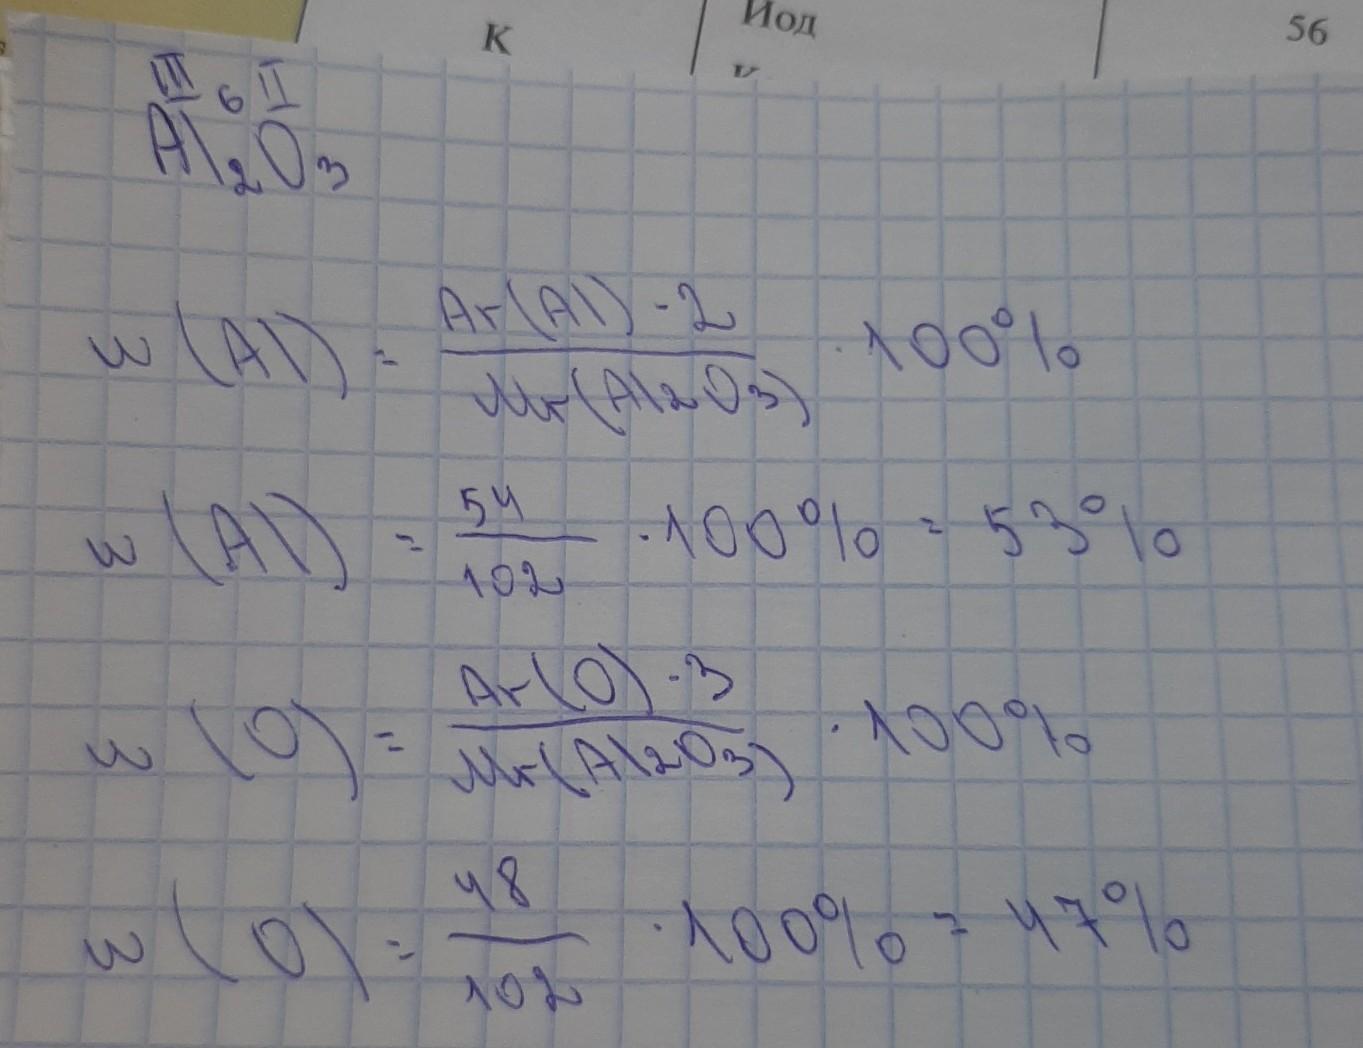 К Йод 56
III 6 II
Al2O3
w (Al) = Ar(Al) · 2 / Mr(Al2O3) · 100%
w (Al) = 54 / 102 · 100% = 53%
w (O) = Ar(O) · 3 / Mr(Al2O3) · 100%
w (O) = 48 / 102 · 100% = 47%